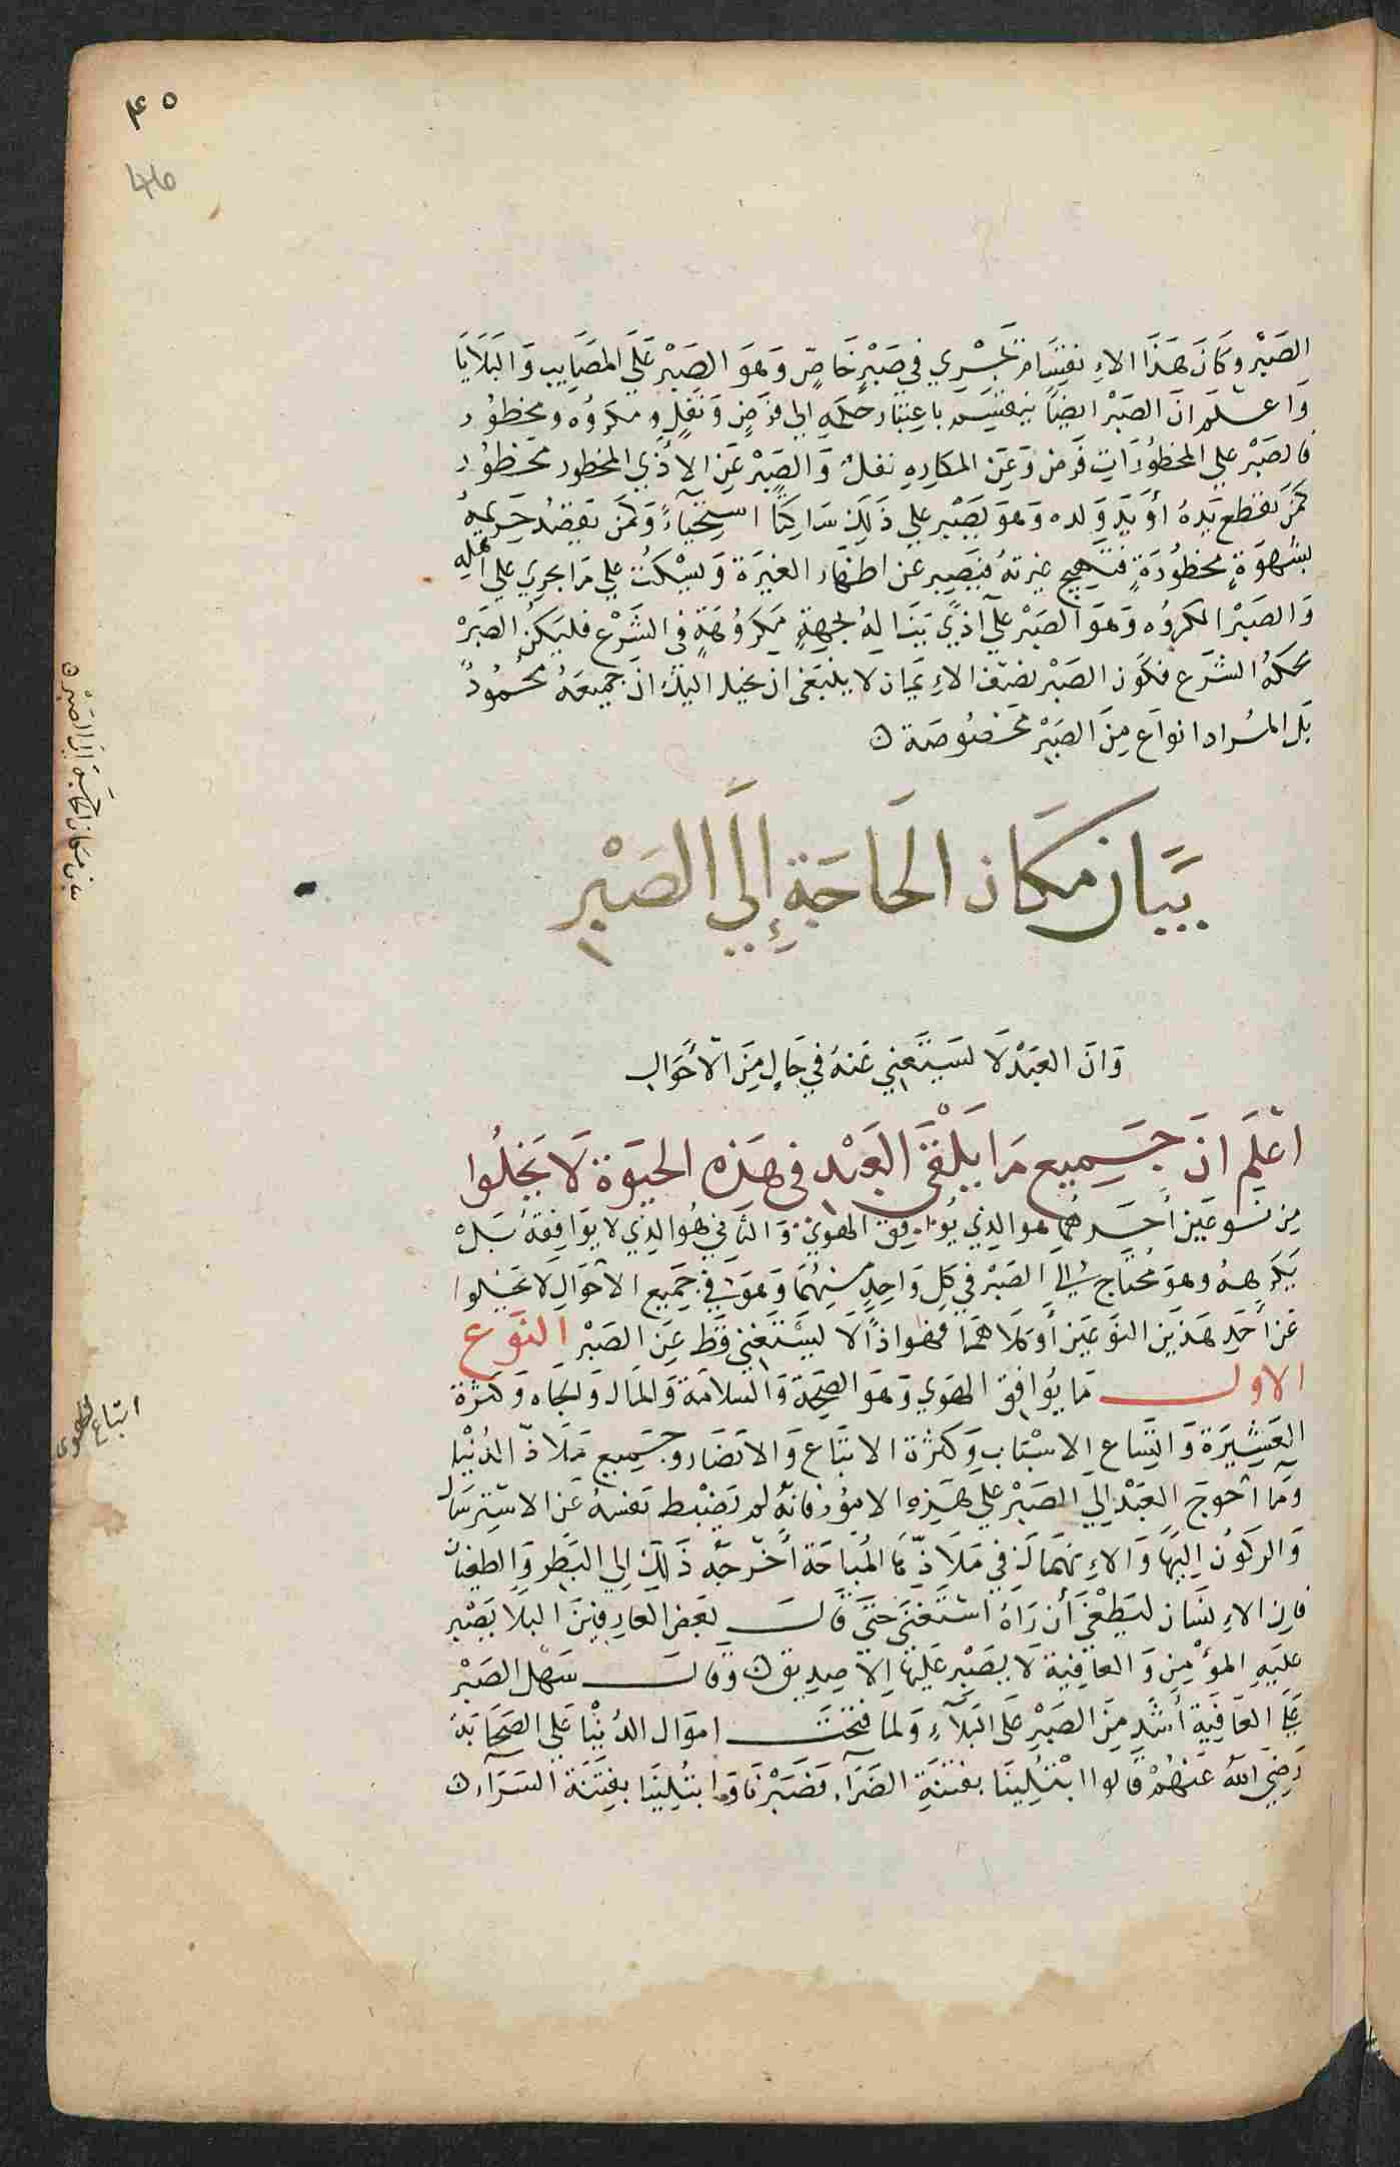 ٤٥
46
الصَبْر وكَانَ هَذَا الاِنقِسَام يَجْرِي في صَبْرٍ خَاصٍّ وَهوَ الصَبْر عَلَى المصَايبِ وَالبَلَايَا
وَاعلَم انَّ الصَبْر ايضًا ينقسَم باعتبَار حكمهِ الي فرَضٍ وَنفلٍ ومكروُه ومحظوُر
فالصَبْر علي المحظوُرَات فَرض وَعَن المكارِهِ نفلٌ وَالصَبْر عَن الاذَي المحظور محَظوُر
كمَن تقطع يَدهُ أوْ يَد وَلده وَهوَ يصَبْر علي ذَلِكَ سَاكِتًا استِحْيَاءً وَكمَن يقصُد حَريمهُ
بشَهوَةٍ محظوُرَةٍ فتَهِيج غيرتهُ فيَصبِر عَن اظهَار الغيرَة وَيسْكُتُ علي مَا يجرِي علي أَهْلِهِ
وَالصَبْر المكروُه وَهوَ الصَبْر عَلَي اذيً يَنَالهُ بجهَةٍ مَكروُهَةٍ في الشَرْع فليَكنْ الصَبَرْ
محكهُ الشَرَع فكوَن الصَبْر نصَف الاِيمَان لا يَنبَغي ان يخيل اليْكَ انَّ جميعَهُ محَمُودٌ
بَل المُراد انواَع مِنَ الصَبْر مخَصُوصَة ن
بَيَان مَكَان الحَاجَةِ إِلَى الصَبْرِ
بيان مكان الحاجة إلى الصبر ن
وَانَّ العَبْد لَا يَستَغنِي عَنهُ في حَالٍ مِنَ الأَحْوَالِ
اعْلَم انَّ جَمِيع مَا يَلْقَى العَبْد في هَذِهِ الحَيَوة لَا يَخلُوا
مِن نَوعَين أَحَدهُمَا هو الذِي يُوَافِق الهوَي وَالثَاني هُوَ الذِي لا يوَافِقهُ بَلْ
يَكرَههُ وهوَ مُحتَاج إلى الصَبْر في كِل وَاحِدٍ مِنهُمَا وَهوَ في جَمِيع الأحْوَالِ لا يَخلوا
عَن أَحَد هَذَين النوَعَين أَوْ كلاهمَا فهو اذًا لَا يَستَغني قَط عَن الصَبْر النَوع
الاول مَا يُوَافِق الهَوَي وَهوَ الصِحَّة وَالسَلامَة وَالمَال وَالجَاه وَكثَرْة
اتباع الهوى
العَشِيَرة وَاتِسَاع الاسْبَاب وَكثرْة الاتبَاع وَالانصَار وجَمِيع مَلَاذّ الدُنْيَا
ومَا أَحْوَج العَبْد إلي الصَبْر علي هَذِهِ الامُور فانَّهُ لم يَضْبط نفسَهُ عَن الاسْترسَال
وَالركوُن اليَها وَالاِنهمَاك في مَلَاذّهَا المُبَاحَة أَخْرجَه ذَلِكَ إلي البَطرِ وَالطغيَان
فان الاِنسَان ليَطْغَى أَن رَآهُ اسْتَغنَى حَتيَّ قَالَ بَعض العَارِفينَ البلَا يصْبر
عليَهِ المُؤْمِن وَالعَافيَة لَا يصَبْر عَليهَا اِلّا صِديق ن وَقالَ سَهْل الصَبْر
عَلَى العَافيَةِ أَشَد مِنَ الصَبْرِ علَى البَلآءِ وَلما فتحَتْ اموَال الدُنيْا عَلي الصَحَابَة
رَضِيَ اللهُ عَنهُمْ قَالوا ابْتُلِينَا بفتنَةِ الضَرَّآء فصَبَرْنَا وَابتُلِينَا بفِتنَة السَرَّآء ن